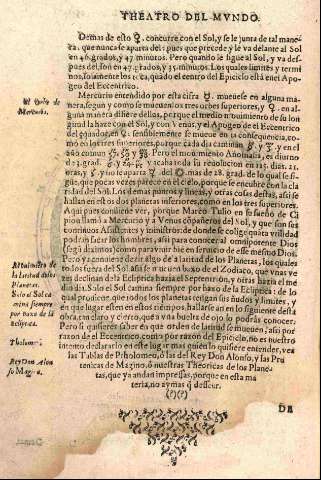 THEATRO DEL MVNDO.
Demas de esto ♀. concurre con el Sol, y se le junta de tal mane
ra, que nunca se aparta del: pues que precede y le va delante al Sol
en 46. grados, y 47. minutos. Pero quando le sigue al Sol, y va des
pues del, son 47. grados, y 35. minutos. Los quales limites y termi
nos, solamente los toca, quado el centro del Epiciclo está en el Apo
geo del Eccentrico.
Mercurio entendido por esta cifra ☿. mueuese en alguna ma
nera, segun y como se mueuen los tres orbes superiores, y ♀. en al-
guna manera difiere dellos, porque el medio mouimiento de su lon
gitud la haze con el Sol, y con Venus, y el Apogeo de el Eccentrico
del quadrado, en sensiblemente se mueue en la consequencia, co-
mo en los tres superiores, porque cada dia caminan
año comun Pero el mouimiento Anomalia, es diurno
de 3. grad. y acaba toda su reuolucion en 115. dias. 21.
oras, y no se aparta del mas de 28. grad. de lo qual se si-
gue, que pocas vezes parece en el cielo, porque se encubre con la cla
ridad del Sol. Los demas puntos y lineas, y otras cosas destas, assi se
hallan en estos dos planetas inferiores, como en los tres superiores.
Aqui pues conuiene ver, porque Marco Tulio en su sueño de Ci
pion llamò a Mercurio y a Venus cõpañeros del Sol, y que son sus
continuos Assistentes y ministros: de donde se colige quãta vtilidad
podrán sacar los hombres, assi para conocer al omnipotente Dios
(seg͂ diximos) como para viuir bien en seruicio de esse mesmo Dios.
Pero ya conuiene dezir algo de a latitud de los Planetas, los quales
todos fuera del Sol assi se mueuen baxo de el Zodiaco, que vnas ve
zes declinan de la Ecliptica hazia el Septentrion, y otras hazia el me
dio dia. Solo el Sol camina siempre por baxo de la Ecliptica: de lo
qual procede que todos los planetas tengan sus nudos y limites, y
en que lugar esten en estos tiempos, hallarse an en lo siguiente desta
obra, tan claro, y cierto, que a vna buelta de ojo lo podrás conocer.
Pero si quisieres saber en que orden de latitud se mueuen, assi por
razon de el Eccentrico, como por razon de el Epiciclo, no es nuestro
intento declararlo en este lugar: mas quien lo quisiere entender, vea
las Tablas de Ptholomeo, ò las del Rey Don Alonso, y las Pru
tenicas de Magino, ò nuestras Theoricas de los Plane-
tas, que ya andan impressas, porque en esta ma
teria, no ay mas q̃ dessear.
(?)(?)
DE
El Orbe de
Mercurio.
Mouimiento de
la latitud de los
Planetas.
Solo el Sol ca
mina siempre
por baxo de la
Ecliptica.
Tholome.
Rey Don Alon
so Magino.